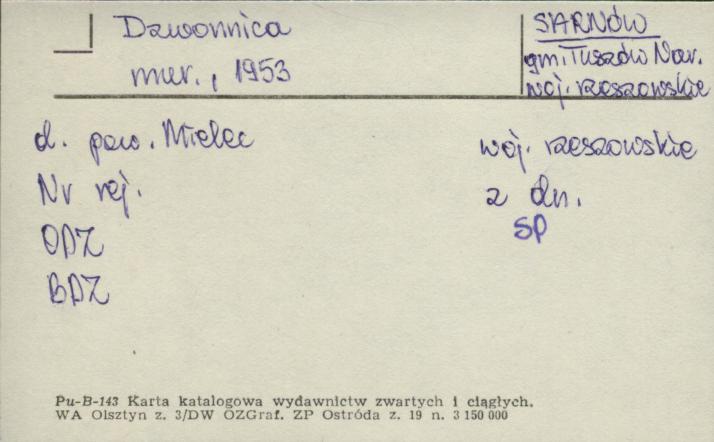 Dzwonnica
mur., 1953
SARNÓW
gm. Tuszów Nar.
woj. rzeszowskie
d. pow. Mielec
woj. rzeszowskie
Nr rej.
z dn.
SP
ODZ
BDZ
Pu-B-143 Karta katalogowa wydawnictw zwartych i ciągłych.
WA Olsztyn z. 3/DW OZGraf. ZP Ostróda z. 19 n. 3 150 000